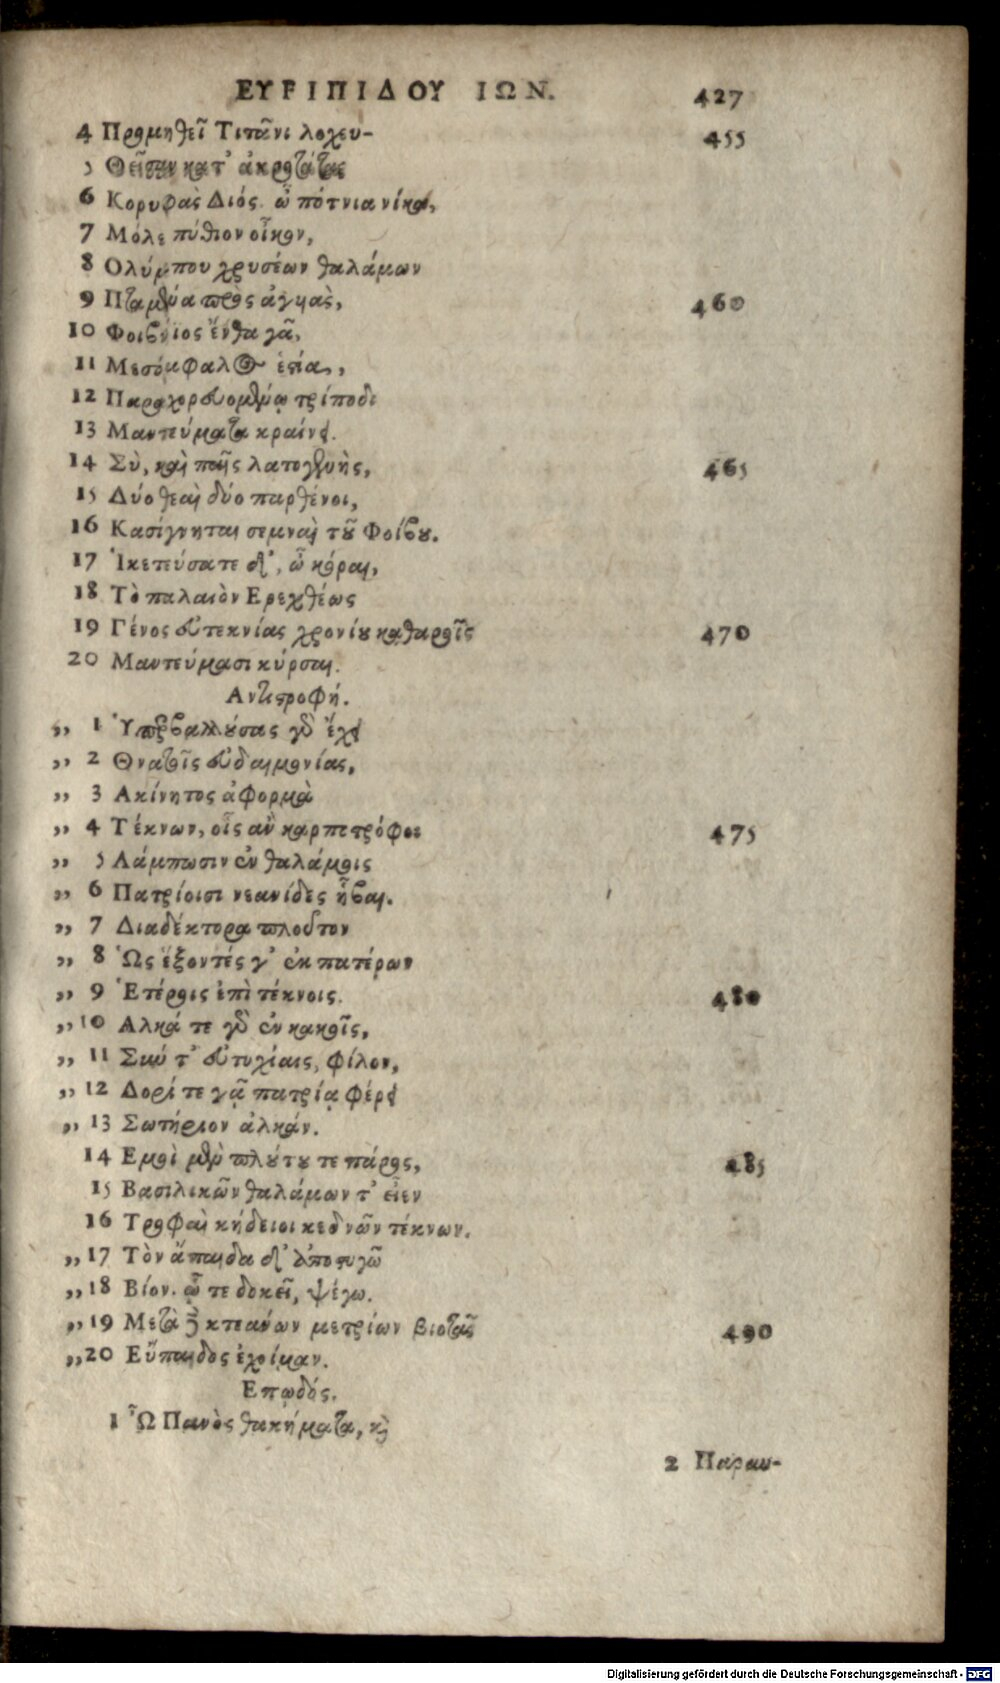 ΕΥΡΙΠΙΔΟΥ ΙΩΝ. 427
4 Προμηθεῖ Τιτᾶνι λοχευ- 455
5 Θεῖσαν κατ' ἀκροτάτας
6 Κορυφὰς Διός. ὦ πότνια νίκα,
7 Μόλε πύθιον οἶκον,
8 Ολύμπου χρυσέων θαλάμων
9 Πταμένα πρὸς ἀγυιὰς, 460
10 Φοιβήϊος ἔνθα γᾶ,
11 Μεσόμφαλος ἑστία,
12 Παραχορευομένῳ τρίποδι
13 Μαντεύματα κραίνει.
14 Σὺ, καὶ παῖς λατογενὴς, 465
15 Δύο θεαὶ δύο παρθένοι,
16 Κασίγνηται σεμναὶ τοῦ Φοίβου.
17 Ἱκετεύσατε δ', ὦ κόραι,
18 Τὸ παλαιὸν Ερεχθέως
19 Γένος εὐτεκνίας χρονίου καθαροῖς 470
20 Μαντεύμασι κύρσαι.
Αντιστροφή.
„ 1 Ὑπερβαλλούσας γὰρ ἔχει
„ 2 Θνατοῖς εὐδαιμονίας,
„ 3 Ακίνητος ἀφορμὰ
„ 4 Τέκνων, οἷς ἂν καρποτρόφοι 475
„ 5 Λάμπωσιν ἐν θαλάμοις
„ 6 Πατρίοισι νεανίδες ἧβαι.
„ 7 Διαδέκτορα πλοῦτον
„ 8 Ὡς ἕξοντές γ' ἐκ πατέρων
„ 9 Ἑτέροις ἐπὶ τέκνοις. 480
„ 10 Αλκά τε γὰρ ἐν κακοῖς,
„ 11 Σύν τ' εὐτυχίαις, φίλον,
„ 12 Δορί τε γᾷ πατρίᾳ φέρει
„ 13 Σωτήριον ἀλκάν.
14 Εμοὶ μὲν πλούτου τε πάρος, 485
15 Βασιλικῶν θαλάμων τ' εἶεν
16 Τροφαὶ κήδειοι κεδνῶν τέκνων.
„ 17 Τὸν ἄπαιδα δ' ἀποστυγῶ
„ 18 Βίον. ᾧ τε δοκεῖ, ψέγω.
„ 19 Μετὰ δὲ κτεάνων μετρίων βιοτᾶς 490
„ 20 Εὔπαιδος ἐχοίμαν.
Επῳδός.
1 Ὦ Πανὸς θακήματα, καὶ
2 Παραυ-
Digitalisierung gefördert durch die Deutsche Forschungsgemeinschaft - DFG